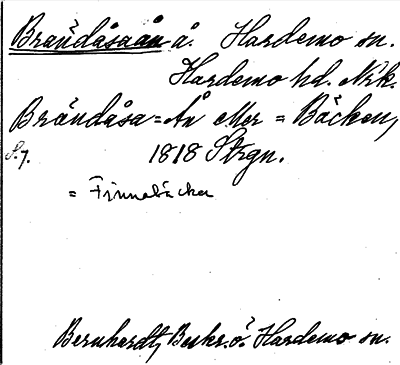 Brändåsaån å. Hardemo sn.
Hardemo hd. Nrk.
Brändåsa=Ån eller = Bäcken,
S. 7. 1818 Strgn.
= Finnabäcken
Bernhardt, Beskr. ö. Hardemo sn.